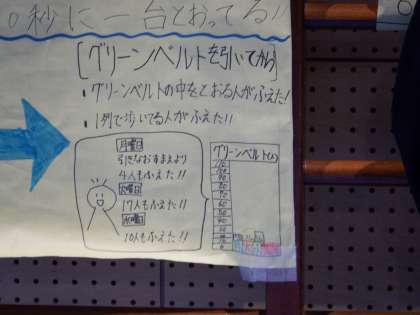 0秒に一台とおってる!!
[グリーンベルトを引いてから]
・グリーンベルトの中をとおる人がふえた!
・1列で歩いてる人がふえた!!
月曜日
引きなおすまえより
4人もふえた!!
火曜日
17人もふえた!!
水曜日
10人もふえた!!
グリーンベルト(人)